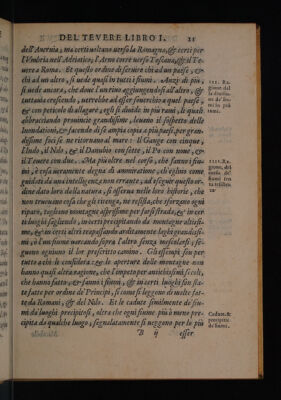 DEL TEVERE LIBRO I. 21
dell'Auernia, ma certi voltano verso la Romagna, & certi per
l'Vmbria nell'Adriatico; l'Arno corre verso Toscana, & il Te
uere a Roma. Et questo ordine di seruire chi ad un paese, &
chi ad altri, si vede quasi in tutti i fiumi. Anzi di più,
si uede ancora, che doue l'un rino aggiungendosi all'altro, &
tuttauia crescendo, potrebbe ad esser souerchio a quel paese,
& con pericolo di allagare, egli si diuide in più rami, li quali
abbracciando prouincie grandissime, leuano il sospetto delle
inondationi, & facendo di se ampia copia a più paesi, per gran-
dissime foci se ne ritornano al mare: Il Gange con cinque,
l'Indo, il Nilo, & il Danubio con sette, il Po con noue, &
il Teuere con due. Ma più oltre nel corso, che fanno i fiu-
mi, è cosa ueramente degna di ammiratione, ch'eglino come
guidati da una intelligenza non errante, ad eseguir questo or-
dine dato loro della natura, si osserua nelle loro historie, che
non truouano cosa che gli ritenga, ne ressista, che sforzano ogni
riparo, tagliano montagne asprissime per farsi strada, & in certi
luoghi sagliendo, in certi precipitando da montagne altissi-
me, & in certi altri trapassando arditamente laghi grandissi-
mi, è l'un fiume uarcando sopra l'altro senza mescolarsi, se-
guono ogniuno il lor prescritto camino. Gli essempi son per
tutto a chi le considera: & se le aperture delle montagne non
hanno quasi altra ragione, che l'impeto per antichissimi secoli,
che hanno fatto, & fanno i fiumi, & in certi luoghi son sta-
te fatte per ordine de' Principi, si come si leggono di molte fat-
te da Romani, & del Nilo. Et le cadute similmente de' fiu-
mi da luoghi precipitosi, oltra che ogni fiume più ò meno pre-
cipita da qualche luogo, segnalatamente si ueggono per lo più
B ij esser
III. Ra-
gione del
la diuisio-
ne de' fiu-
mi in più
rami.
IIII. Ra-
gione, del
corso de'
fiumi sen
za trasuiar
si.
Cadute, &
precipitij
de fiumi.